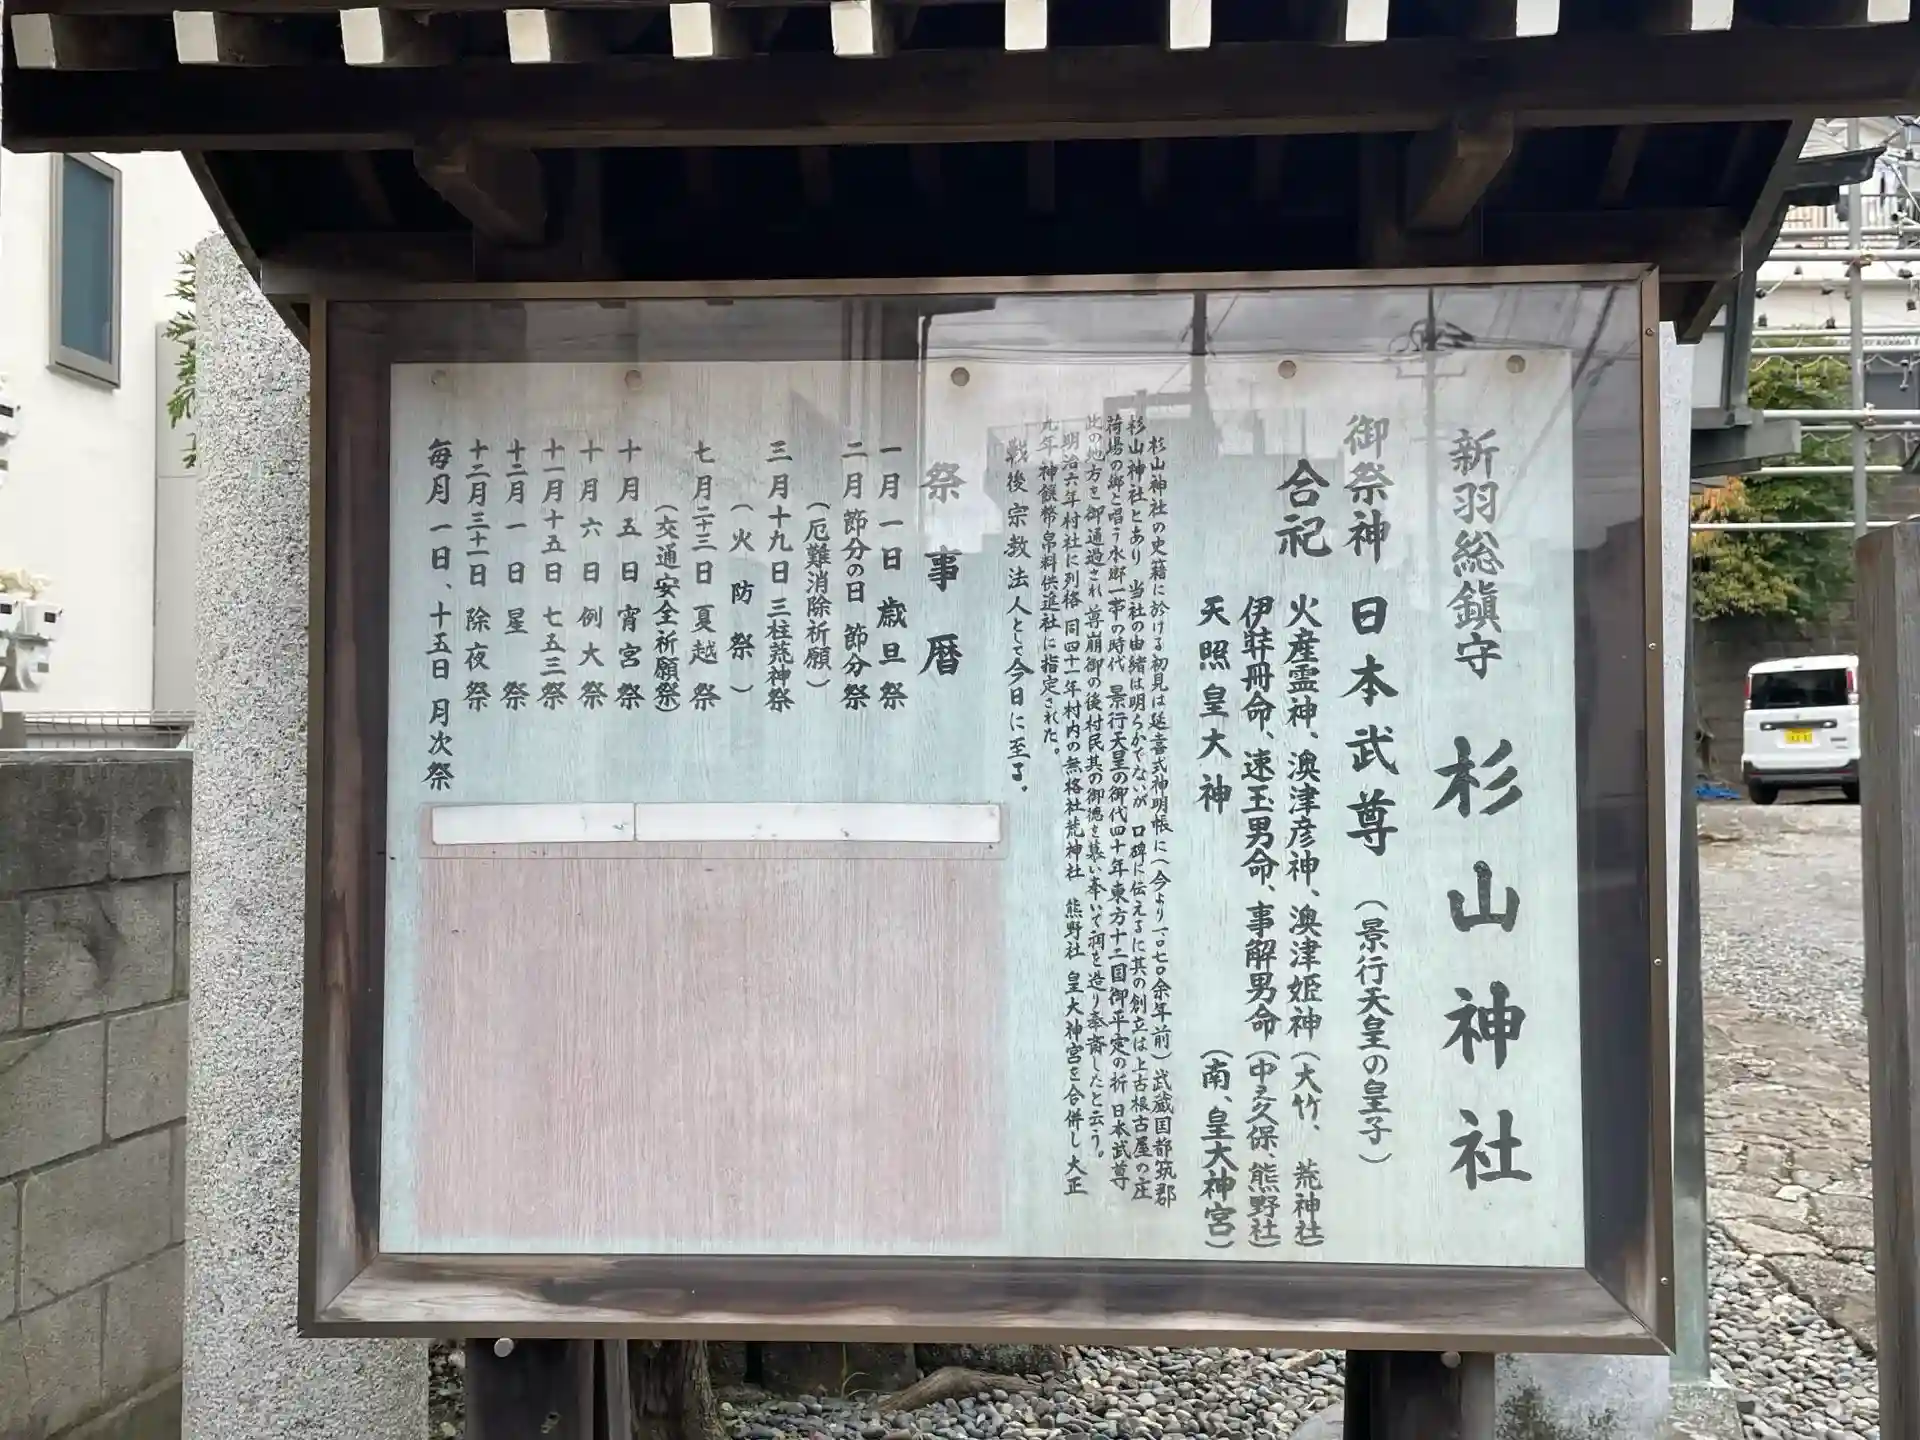 新羽総鎮守 杉山神社
御祭神 日本武尊 (景行天皇の皇子)
合祀 火産霊神、澳津彦神、澳津姫神 (大竹、荒神社)
伊弉冊命、速玉男命、事解男命 (中之久保、熊野社)
天照皇大神 (南、皇大神宮)
杉山神社の史籍に於ける初見は延喜式神明帳に(今より一〇七〇余年前)武蔵国都筑郡
杉山神社とあり 当社の由緒は明らかでないが 口碑に伝えるに其の創立は上古根古屋の庄
荷場の郷と唱う水郷一帯の時代 景行天皇の御代四十年東方十二国御平定の折 日本武尊
此の地方を御通過され 尊崩御の後村民其の御徳を慕い奉いて祠を造り奉斎したと云う。
明治六年村社に列格 同四十一年村内の無格社荒神社 熊野社 皇大神宮を合併し 大正
九年神饌幣帛料供進社に指定された。
戦後宗教法人として今日に至る。
祭事暦
一月一日 歳旦祭
二月節分の日 節分祭
(厄難消除祈願)
三月十九日 三柱荒神祭
(火防祭)
七月二十三日 夏越祭
(交通安全祈願祭)
十月五日 宵宮祭
十月六日 例大祭
十一月十五日 七五三祭
十二月一日 星祭
十二月三十一日 除夜祭
毎月一日、十五日 月次祭